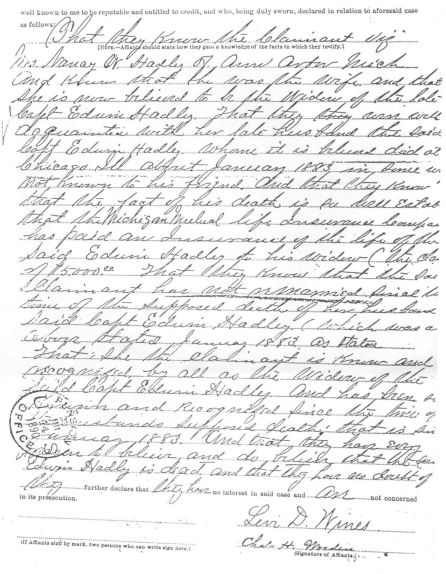 well known to me to be reputable and entitled to credit, and who, being duly sworn, declared in relation to aforesaid case
as follows: That they Know the Claimant viz
[NOTE.—Affiants should state how they gain a knowledge of the facts to which they testify.]
Mrs. Nancy W. Hadley of Ann Arbor Mich
And Know that she was the wife and that
She is now believed to be the Widow of the late
Capt Edwin Hadley. That they were well
acquainted with her late husband the said
Capt Edwin Hadley Whome it is believed died at
Chicago Ill about January 1883 in some
not known to his friend. And that they Know
that the fact of his death is so well
that the Michigan Mutual life Insurance
has paid an Insurance of the life of the
Said Edwin Hadley to his widow (the
of $5000.00 That they Know that the
Claimant has not remarried since the
time of the supposed death of her husband
Said Capt Edwin Hadley (which was
above stated January 1883, as
That She the claimant is Know and
recognized by all as the Widow of the
Said Capt Edwin Hadley And has been
Known and Recognized Since the time of
husbands supposed death, that is
January 1883. And that they have every
to believe and do believe that
Edwin Hadly is dead and that they
they further declare that they have no interest in said case and are not concerned
in its prosecution.
Levi D. Wines
Chas H. Worden
(If Affiants sign by mark, two persons who can write sign here.)
(Signature of Affiants.)